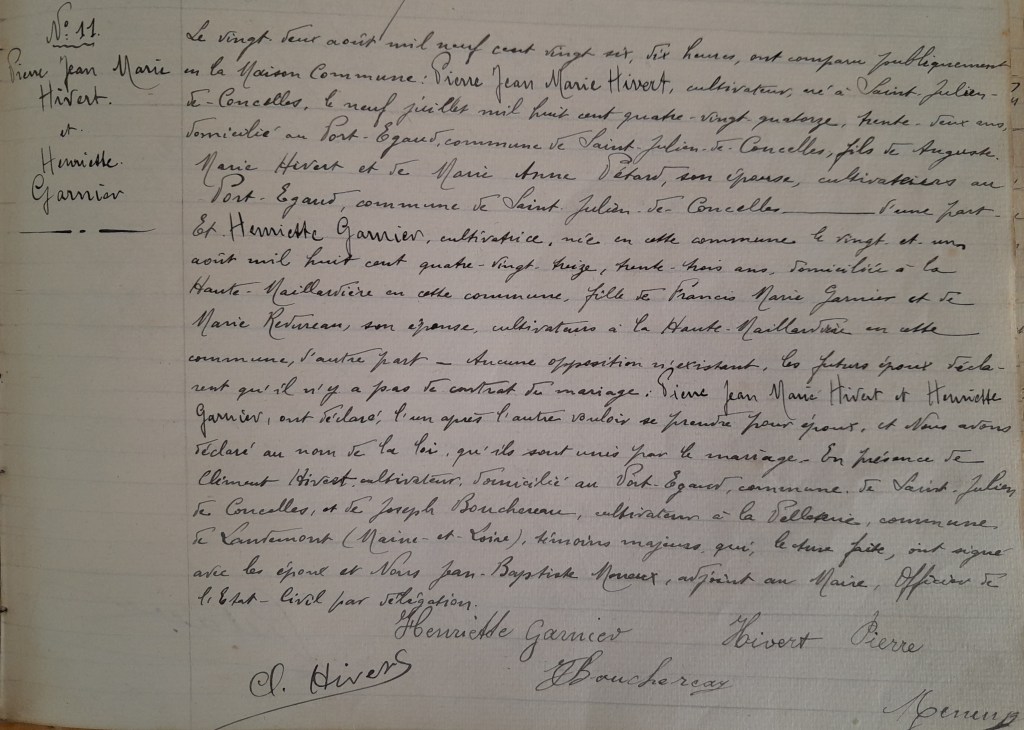 N° 11.
Pierre Jean Marie
Hivert.
et
Henriette
Garnier
Le vingt deux août mil neuf cent vingt six, dix heures, ont comparu publiquement
en la Maison Commune : Pierre Jean Marie Hivert, cultivateur, né à Saint-Julien-
de-Concelles, le neuf juillet mil huit cent quatre-vingt-quatorze, trente-deux ans,
domicilié au Port-Egaud, commune de Saint-Julien-de-Concelles, fils de Auguste
Marie Hivert et de Marie Anne Pétard, son épouse, cultivateurs au
Port-Egaud, commune de Saint-Julien-de-Concelles — d'une part-
Et Henriette Garnier, cultivatrice, née en cette commune le vingt-et-un
août mil huit cent quatre-vingt-treize, trente-trois ans, domiciliée à la
Haute-Maillardière en cette commune, fille de Francis Marie Garnier et de
Marie Redureau, son épouse, cultivateurs à la Haute-Maillardière en cette
commune, d'autre part — Aucune opposition n'existant, les futurs époux décla-
rent qu'il n'y a pas de contrat de mariage : Pierre Jean Marie Hivert et Henriette
Garnier, ont déclaré, l'un après l'autre vouloir se prendre pour époux, et Nous avons
déclaré au nom de la loi, qu'ils sont unis par le mariage - En présence de
Clément Hivert, cultivateur, domicilié au Port-Egaud, commune de Saint-Julien
de Concelles, et de Joseph Bouchereau, cultivateur à la Pelleterie, commune
de Landemont (Maine-et-Loire), témoins majeurs, qui, lecture faite, ont signé
avec les époux et Nous Jean-Baptiste Meneux, adjoint au Maire, Officier de
l'Etat-Civil par délégation.
Henriette Garnier Hivert Pierre
Cl. Hivert J Bouchereau
Meneux